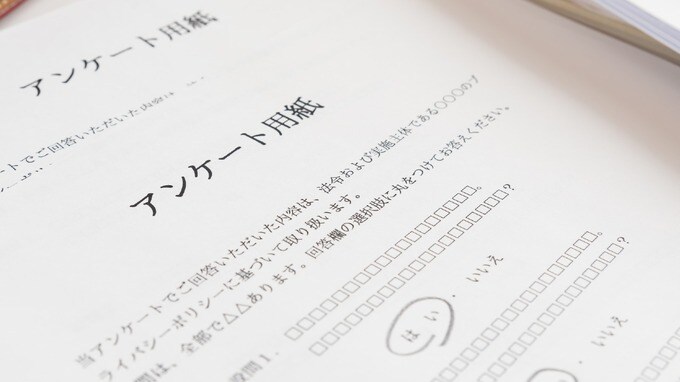 アンケート用紙
ートでご回答いただいた内容は、
アンケート用紙
当アンケートでご回答いただいた内容は、法令および実施主体である○○○のプ
ライバシーポリシーに基づいて取り扱います。
問は、全部で△△あります。回答欄の選択肢に丸をつけてお答えください。
設問1．
□□□□□□□□□□□□□□□□□□。
□□□□□□□□□□□□□□□□□□？
はい ・ いいえ
□□□□□□□□□□□□□□□□□□。
□□□□□□□□□□□□□□□□□□？
・ いいえ